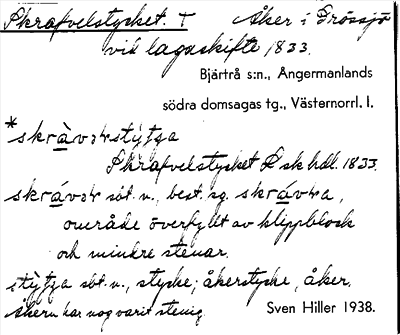 Skrafvelstycket. T Åker i Grössjö
vid lagaskifte 1833.
Bjärtrå s:n., Ångermanlands
södra domsagas tg., Västernorrl. l.
*skràvərstýtja
Skrafvelstycket L sk hdl. 1833.
skrávər sbt. n., best. sg. skrávra,
område överfyllt av klippblock
och mindre stenar.
stýtja sbt. n., stycke; åkerstycke, åker.
Åkern har nog varit stenig.
Sven Hiller 1938.